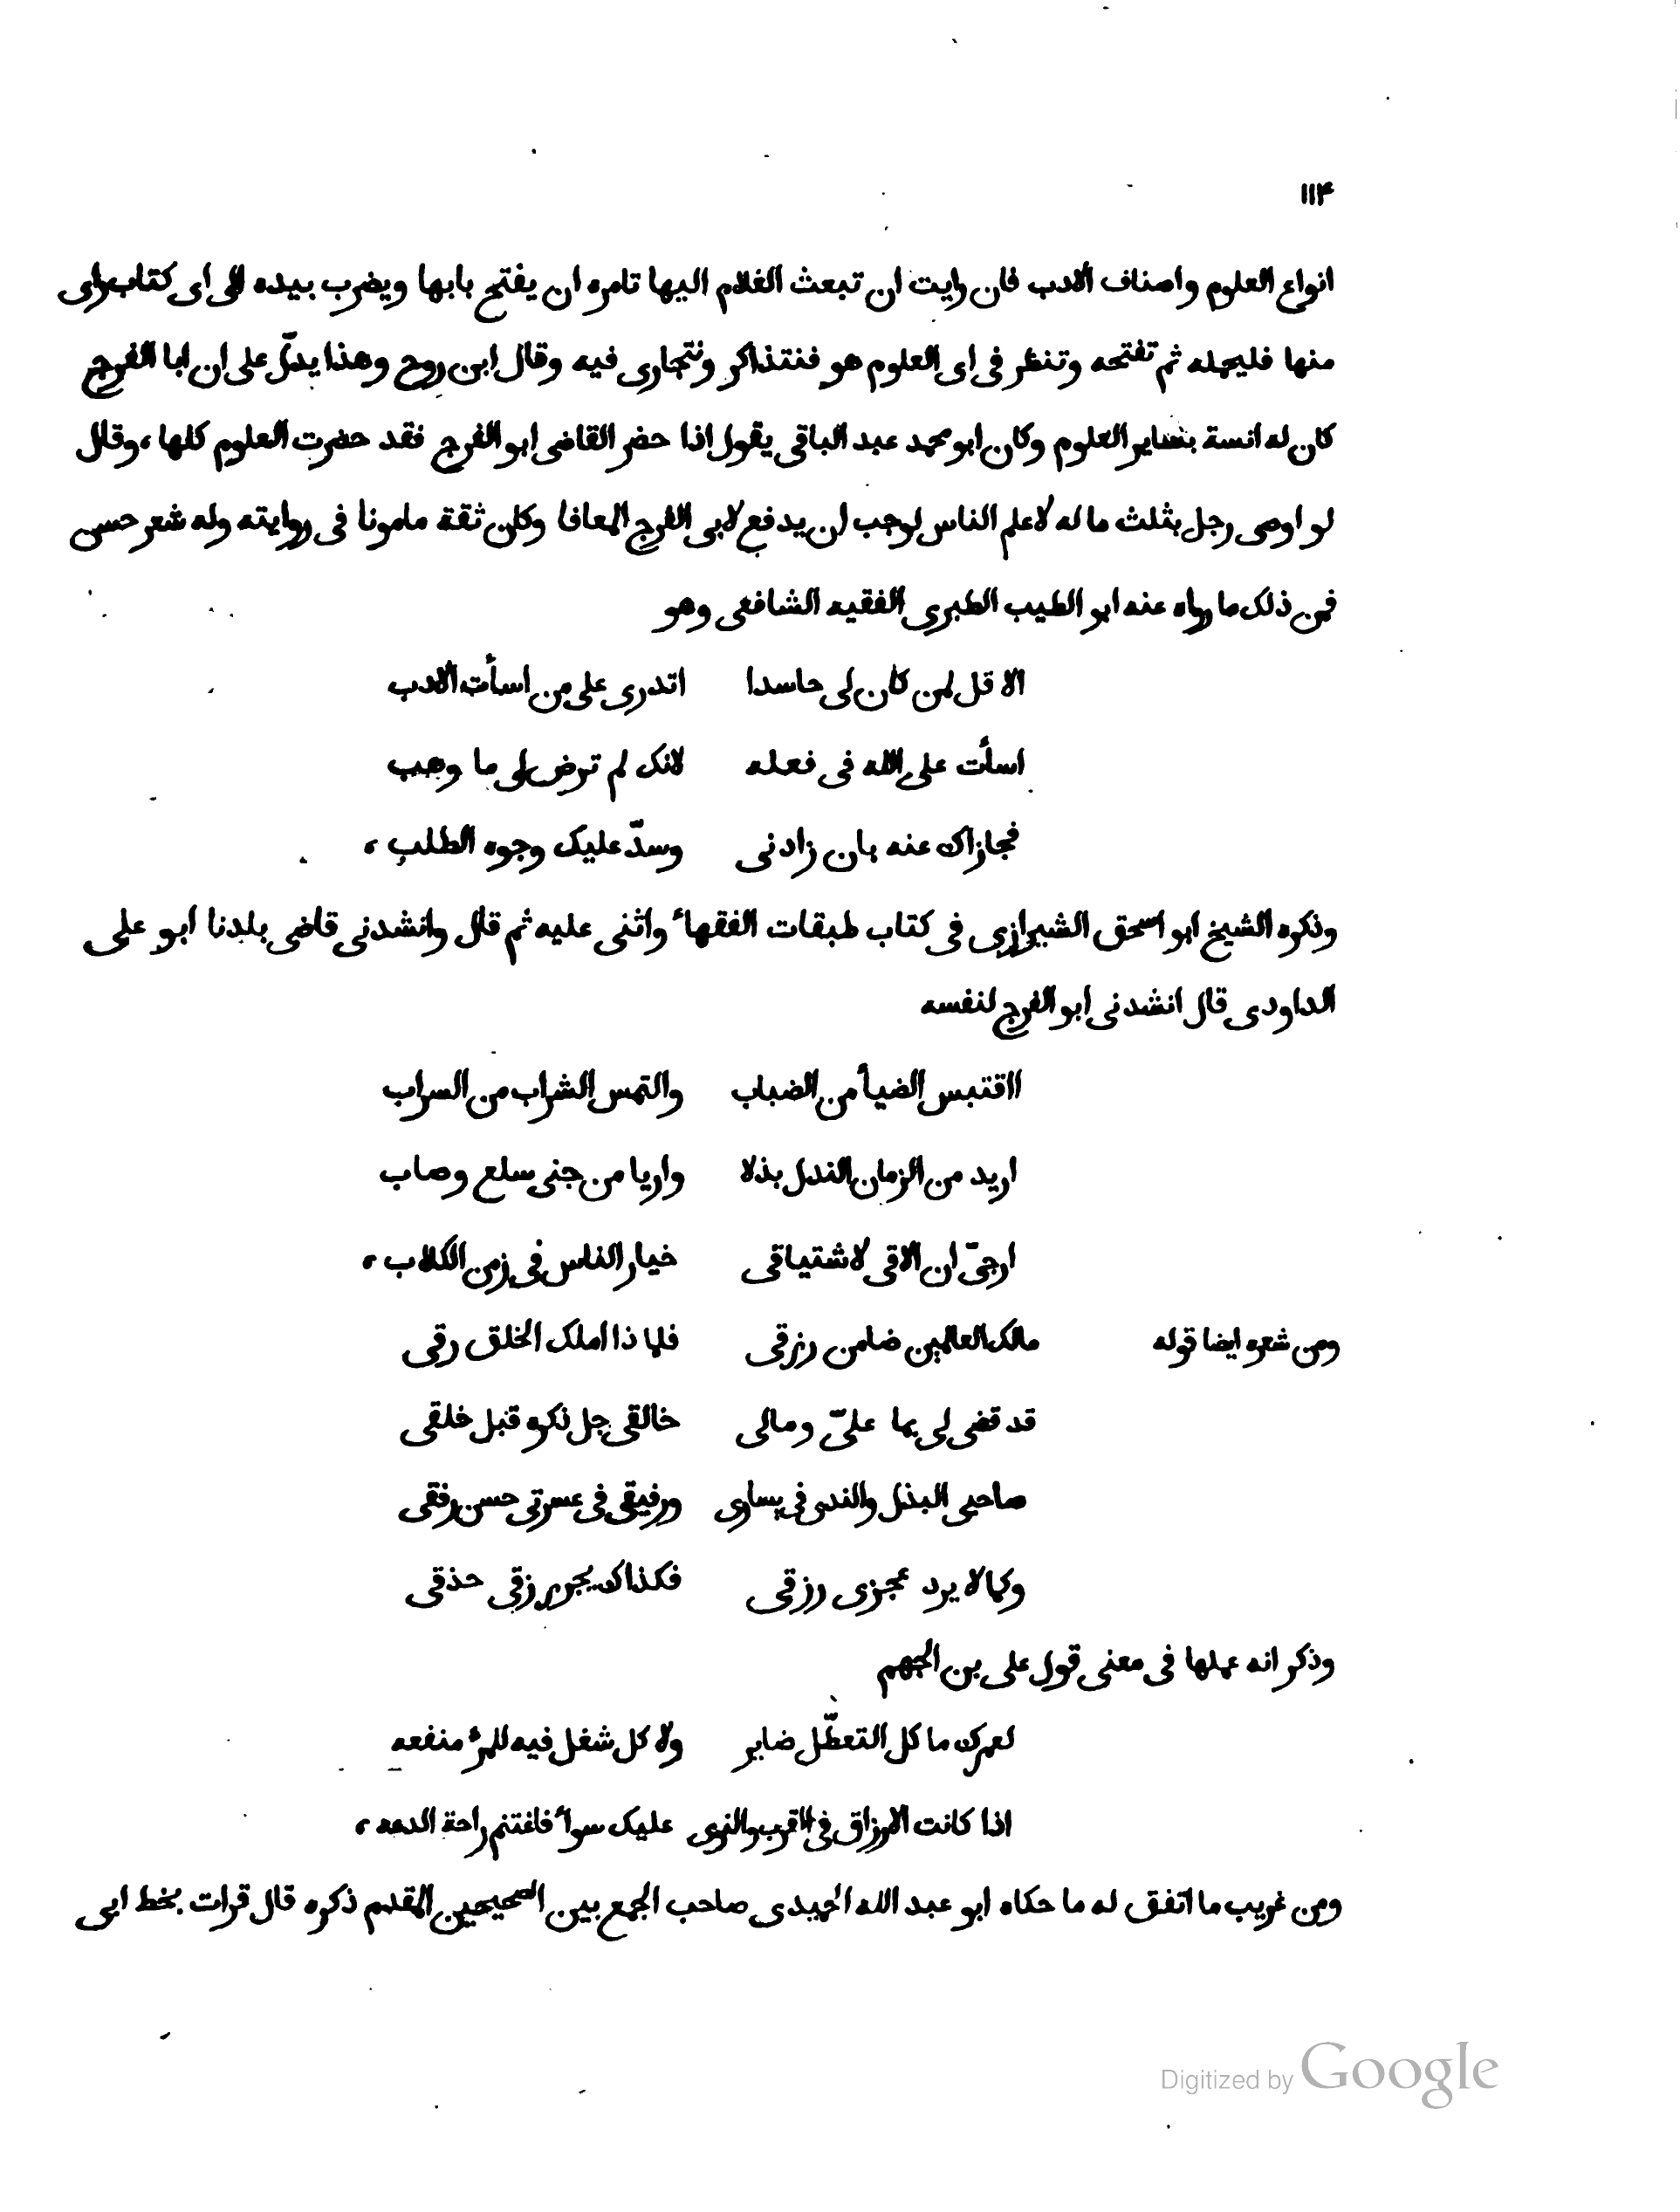 ١١۴
انواع العلوم واصناف الادب فان رايت ان تبعث الغلام اليها تامره ان يفتح بابها ويضرب بيده الى اى كتاب راى
منها فليحمله ثم تفتحه وتنظر فى اى العلوم هو فنتذاكر ونتجارى فيه وقال ابن روح وهذا يدلّ على ان ابا الفرج
كان له انسة بساير العلوم وكان ابو محمد عبد الباقى يقول اذا حضر القاضى ابو الفرج فقد حضرت العلوم كلها، وقال
لو اوصى رجل بثلث ماله لاعلم الناس لوجب ان يدفع لابى الفرج المعافا وكان ثقة مامونا فى روايته وله شعر حسن
فمن ذلك ما رواه عنه ابو الطيب الطبرى الفقيه الشافعى وهو
الا قل لمن كان لى حاسدا اتدرى على من اسأت الادب
اسأت على الله فى فعله لانك لم ترض لى ما وهب
فجازاك عنه بان زادنى وسدّ عليك وجوه الطلب،
وذكره الشيخ ابو اسحق الشيرازى فى كتاب طبقات الفقهاء واثنى عليه ثم قال وانشدنى قاضى بلدنا ابو على
الداودى قال انشدنى ابو الفرج لنفسه
ااقتبس الضياء من الضباب والتمس الشراب من السراب
اريد من الزمان الندل بذلا واريا من جنى سلع وصاب
ارجّى ان الاقى لاشتياقى خيار الناس فى زمن الكلاب،
ومن شعره ايضا قوله مالك العالمين ضامن رزقى فلماذا املك الخلق رقى
قد قضى لى بما علىّ ومالى خالقى جل ذكره قبل خلقى
صاحبى البذل والندى فى يسارى ورفيقى فى عسرتى حسن رفقى
وكما لا يرد عجزى رزقى فكذاك يجر رزقى حذقى
وذكر انه عملها فى معنى قول على بن الجهم
لعمرك ما كل التعطّل ضاير ولا كل شغل فيه للمرء منفعه
اذا كانت الارزاق فى القرب والنوى عليك سواء فاغتنم راحة الدعه،
ومن غريب ما اتفق له ما حكاه ابو عبد الله الحميدى صاحب الجمع بين الصحيحين المقدم ذكره قال قرات بخط ابى
Digitized by Google